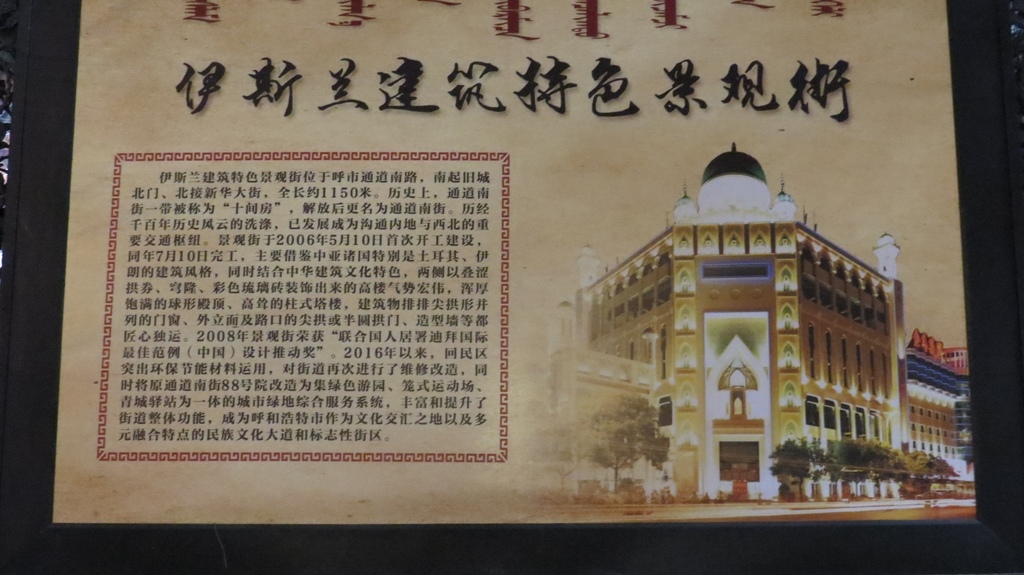 伊斯兰建筑特色景观街
伊斯兰建筑特色景观街位于呼市通道南路，南起旧城
北门、北接新华大街，全长约1150米。历史上，通道南
街一带被称为“十间房”，解放后更名为通道南街。历经
千百年历史风云的洗涤，已发展成为沟通内地与西北的重
要交通枢纽。景观街于2006年5月10日首次开工建设，
同年7月10日完工，主要借鉴中亚诸国特别是土耳其、伊
朗的建筑风格，同时结合中华建筑文化特色，两侧以叠涩
拱券、穹隆、彩色琉璃砖装饰出来的高楼气势宏伟，浑厚
饱满的球形殿顶、高耸的柱式塔楼，建筑物排排尖拱形并
列的门窗、外立面及路口的尖拱或半圆拱门、造型墙等都
匠心独运。2008年景观街荣获“联合国人居署迪拜国际
最佳范例（中国）设计推动奖”。2016年以来，回民区
突出环保节能材料运用，对街道再次进行了维修改造，同
时将原通道南街88号院改造为集绿色游园、笼式运动场、
青城驿站为一体的城市绿地综合服务系统，丰富和提升了
街道整体功能，成为呼和浩特市作为文化交汇之地以及多
元融合特点的民族文化大道和标志性街区。